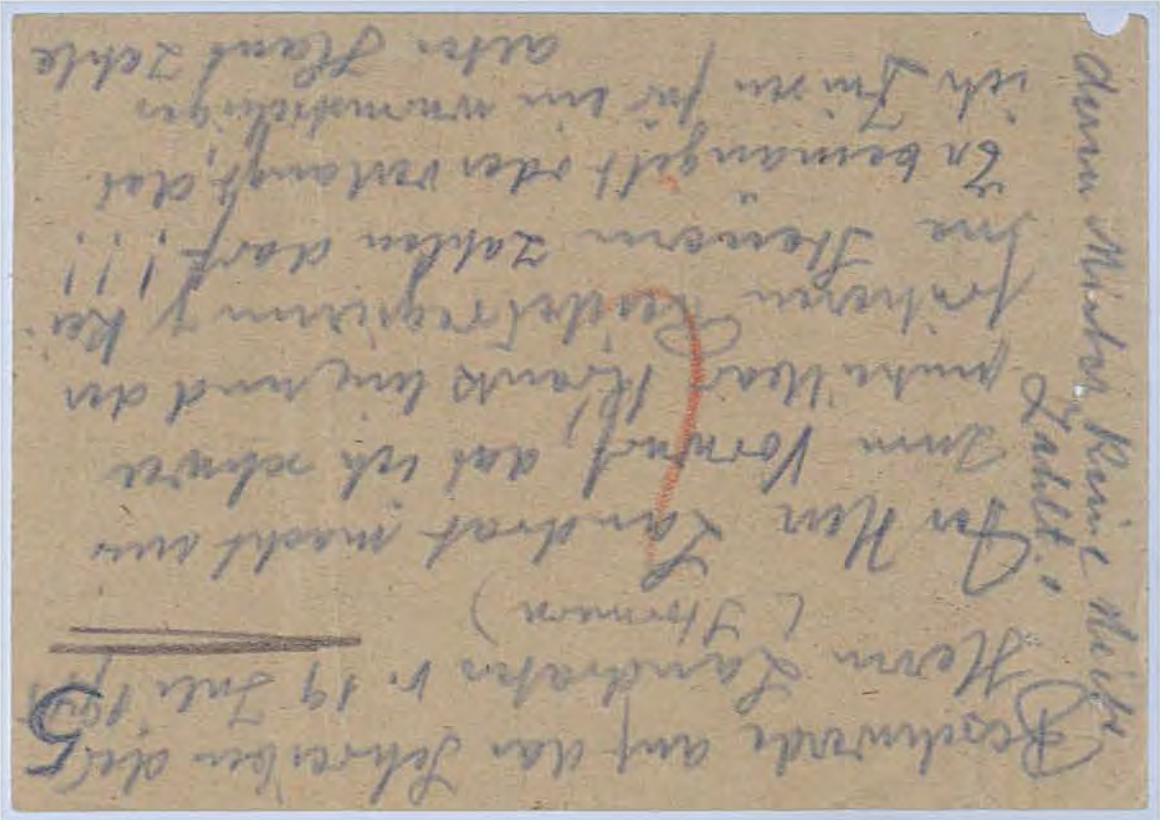 Beschwerde auf das Schreiben des
Herrn Landrates v. 19 Juli 194
5
(Stormarn)
Der Herr Landrat macht mir
zum Vorwurf, daß ich schwer
Krank bin, und der
früheren Reichsregierung kei-
ne Steuern zahlen darf!!!
Er bemängelt oder verlangt, daß
ich Zinsen für ein wurmstichiges
altes Haus zahle
deren Mieter keine Miete
zahlt.